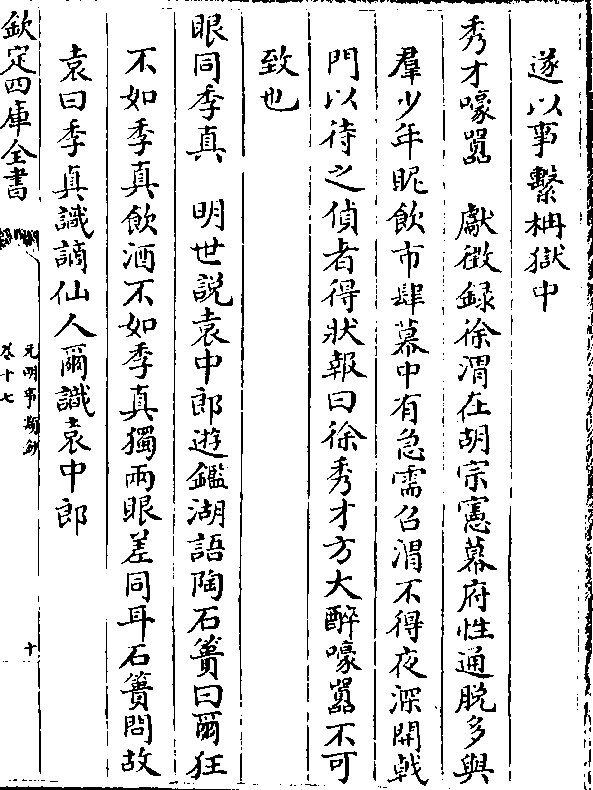 遂以事繫柙獄中
秀才嚎嚣　獻徵録徐渭在胡宗憲幕府性通脱多與
羣少年昵飲市肆幕中有急需召渭不得夜深開戟
門以待之偵者得狀報曰徐秀才方大醉嚎嚣不可
致也
眼同季真　明世説袁中郎遊鑑湖語陶石簣曰爾狂
不如季真飲酒不如季真獨兩眼差同耳石簣問故
袁曰季真識謫仙人爾識袁中郎
欽定四庫全書
元明事類鈔
卷十七
十